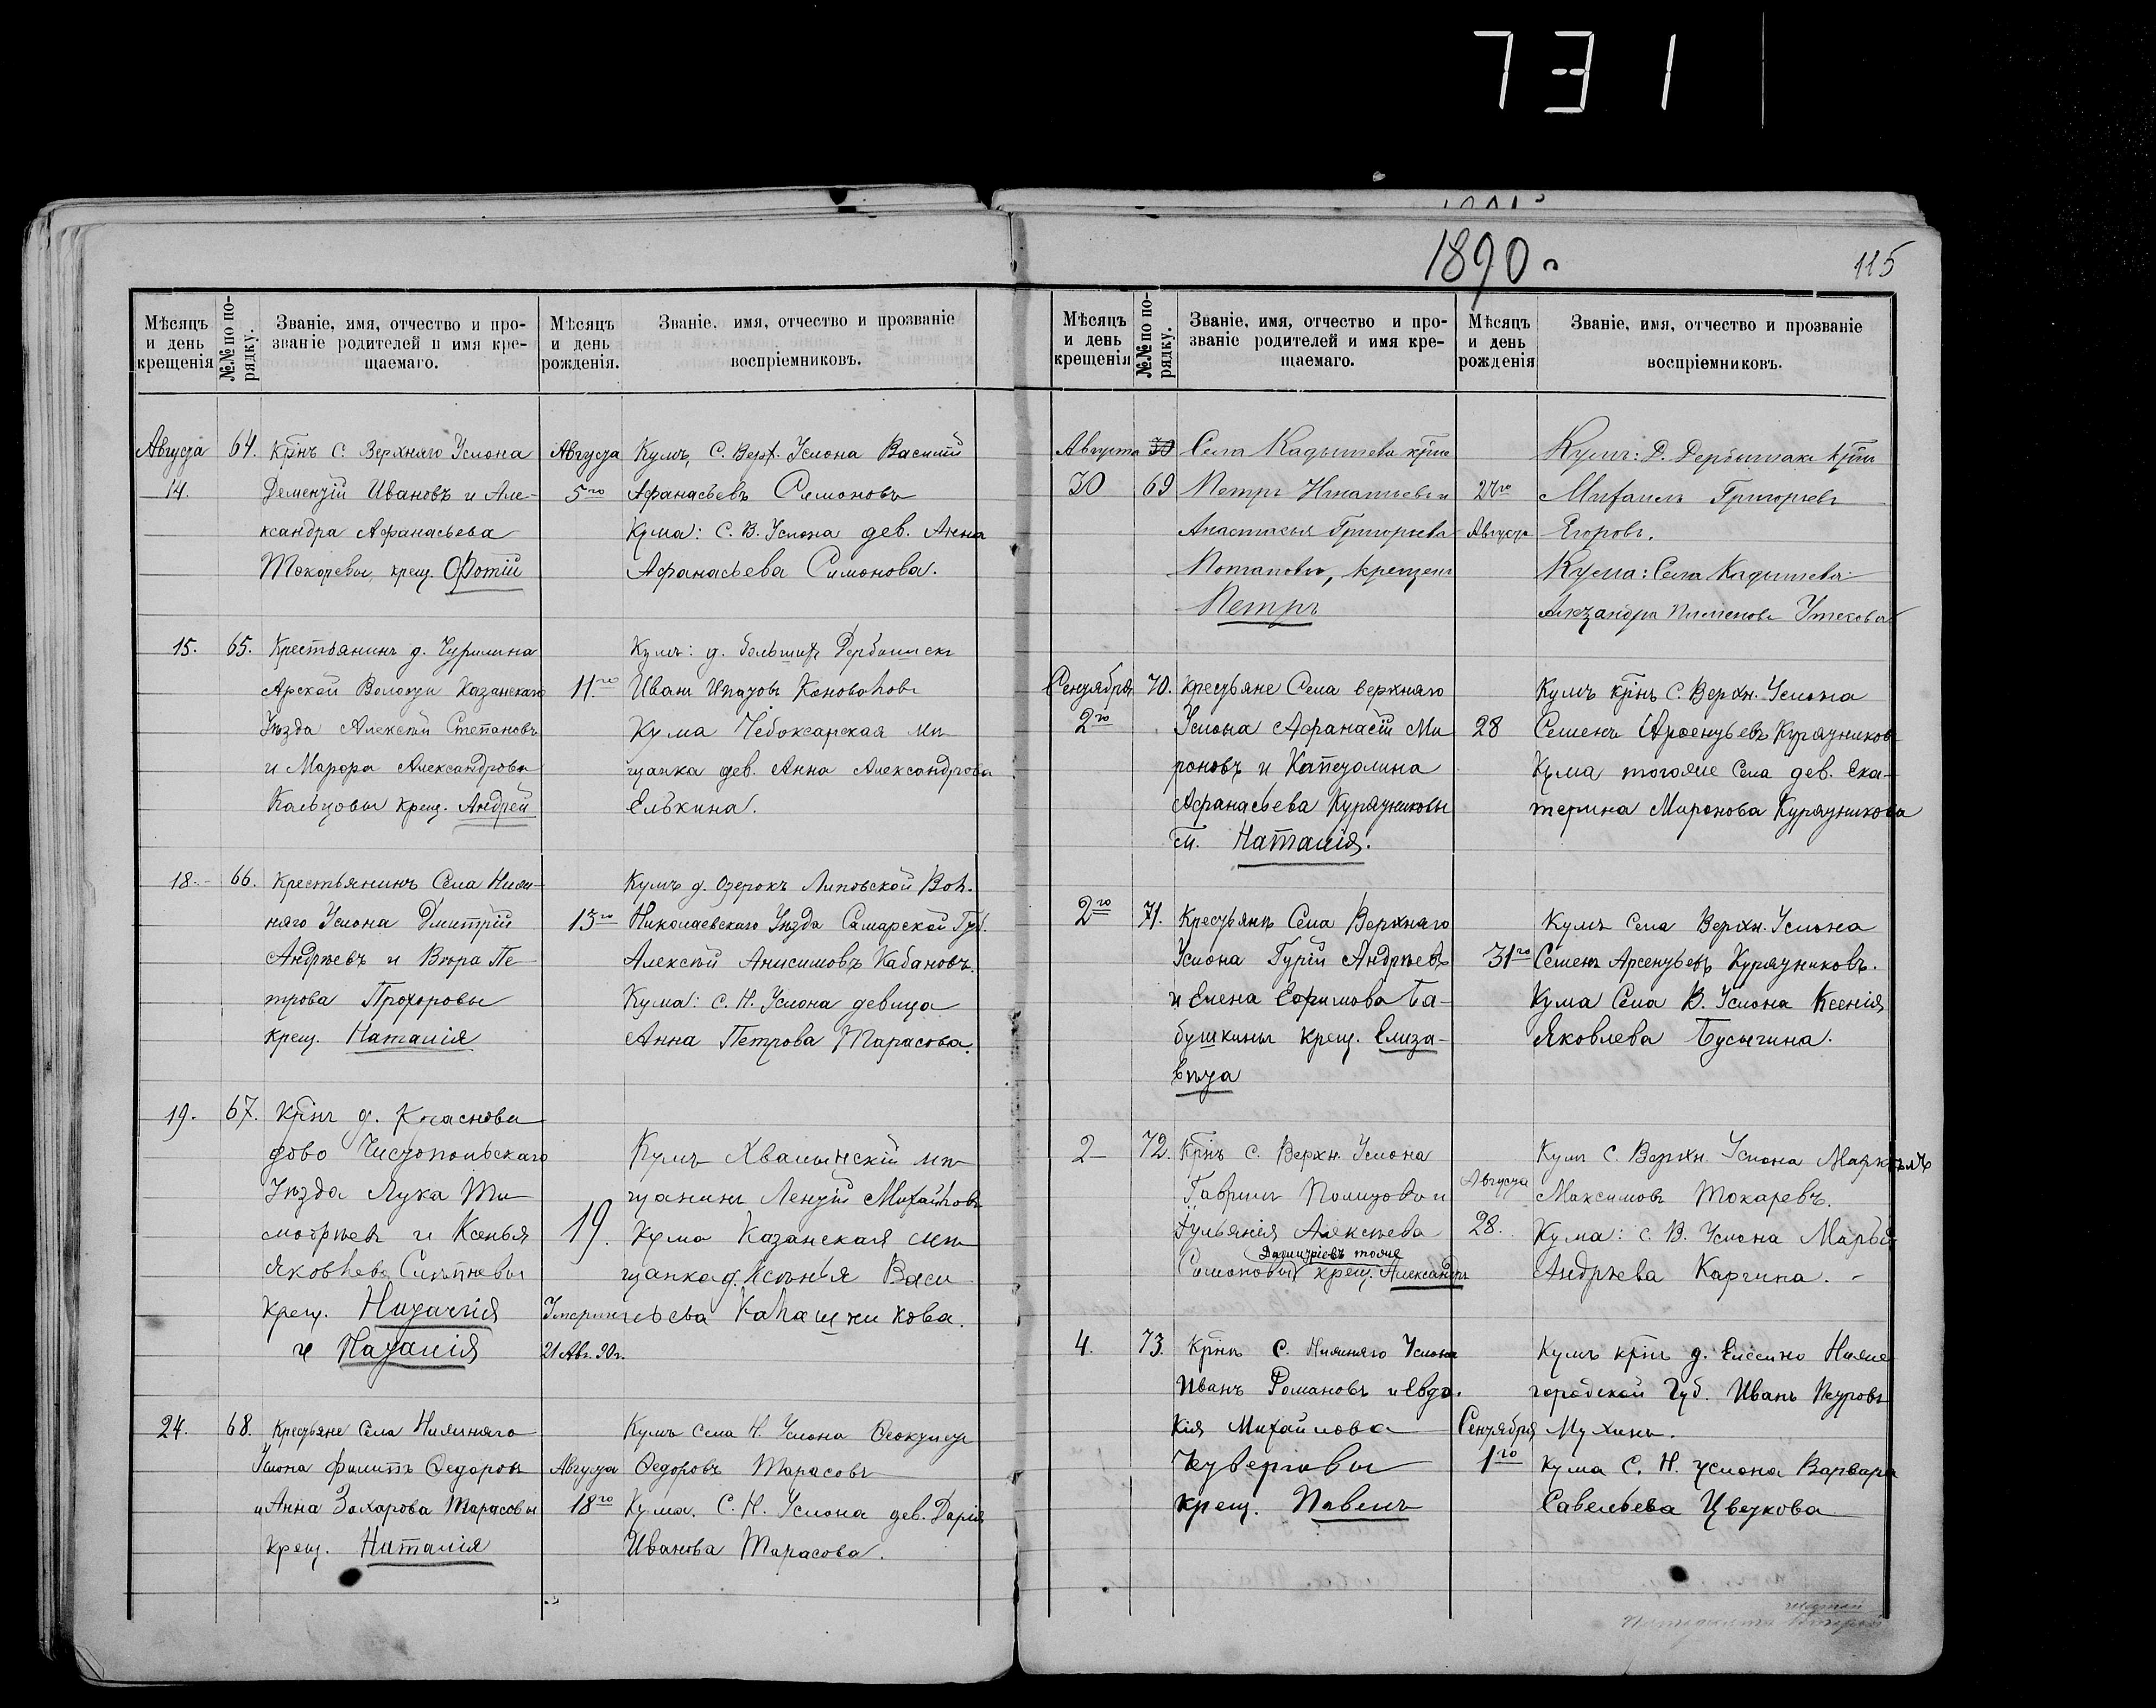 731
1890 г.
115
Мѣсяцъ и день крещенія
№№ по порядку.
Званіе, имя, отчество и прозваніе родителей и имя крещаемаго.
Мѣсяцъ и день рожденія.
Званіе, имя, отчество и прозваніе воспріемниковъ.
Августа 64. Крнъ С. Верхняго Услона
14. Дементій Ивановъ и Але-
ксандра Афанасьева
Токаревы, крещ. Фотій
Августа
5го
Кумъ, С. Верх. Услона Василій
Афанасьевъ Симоновъ
Кума: С. В. Услона дев. Анна
Афанасьева Симонова.
15. 65. Крестьянинъ д. Чурилина
Арской Волости Казанскаго
Уѣзда Алексѣй Степановъ
и Марфа Александрова
Кальцовы крещ. Андрей
11.го
Кумъ: д. большихъ Дербышекъ
Иванъ Ипатовъ Коноваловъ
Кума Чебоксарская мѣ
щанка дев. Анна Александрова
Елькина.
18. 66. Крестьянинъ Села Ниж-
няго Услона Дмитрій
Андрѣевъ и Вѣра Пе-
трова Прохоровы
крещ. Наталія
13го
Кумъ д. Озерокъ Липовской Вол.
Николаевскаго Уѣзда Самарской Губ.
Алексѣй Анисимовъ Кабановъ.
Кума: С. Н. Услона девица
Анна Петрова Тарасова.
19. 67. Крнъ д.
дово Чистопольскаго
Уѣзда Лука Ти
мофѣевъ и Ксенья
Яковлева
крещ.
и Наталія
19.
Умерли
21 Авг. 90г.
Кумъ Хвалынскій мѣ
щанинъ Михайловъ
Кума Казанская мѣ
щанка д. Ксѣнья Васи
льева Калашникова.
24. 68. Крестьяне Села Нижняго
Услона Филиппъ Федоровъ
и Анна Захарова Тарасовы
крещ. Наталія
Августа
18го
Кумъ села Н. Услона Феоктистъ
Федоровъ Тарасовъ
Кума. С. Н. Услона дев. Дарія
Иванова Тарасова.
Мѣсяцъ и день крещенія
№№ по порядку.
Званіе, имя, отчество и прозваніе родителей и имя крещаемаго.
Мѣсяцъ и день рожденія
Званіе, имя, отчество и прозваніе воспріемниковъ.
Августа 30 Села Кадышева крне
30 69 Петръ Игнатьевъ и
Анастасья Григорьева
Потаповы, крещенъ
Петръ
Августа
Кумъ: Д. Дербышак крнъ
Михаилъ Григорьевъ
Егоровъ.
Кума: Села Кадышева
Александра Пименова
Сентября 70. Крестьяне Села верхняго
2го Услона Афанасій Ми
роновъ и Капетолина
Афанасьева Курятниковы
м. Наталія.
28
Кумъ крнъ С. Верхн. Услона
Семенъ Арсентьевъ Курятниковъ
Кума тогоже Села дев. Ека-
терина Миронова Курятникова
2го 71. Крестьянъ Села Верхняго
Услона Гурій Андрѣевъ
и Елена Ефимова Ба-
бушкины крещ. Елиза-
вѣта
31го
Кумъ Села Верхн. Услона
Семенъ Арсентьевъ Курятниковъ.
Кума Села В. Услона Ксенія
Яковлева Бусыгина.
2 72. Крнъ С. Верхн. Услона
Гаврилъ Полиутовъ и
Іульянія Алексѣева
Симоновы крещ. Александръ
Августа
28.
Кумъ С. Верхн. Услона
Максимовъ Токаревъ.
Кума: С. В. Услона Марья
Андрѣева Каргина.
4. 73. Крнъ С. Нижняго Услона
Иванъ Романовъ и Евдо.
кія Михайлова
Четверговы
крещ. Павелъ
Сентября
1го
Кумъ крнъ д. Елесино Ниже
городской Губ. Иванъ Петровъ
Мухинъ.
Кума С. Н. Услона Варвара
Савельева Цветкова